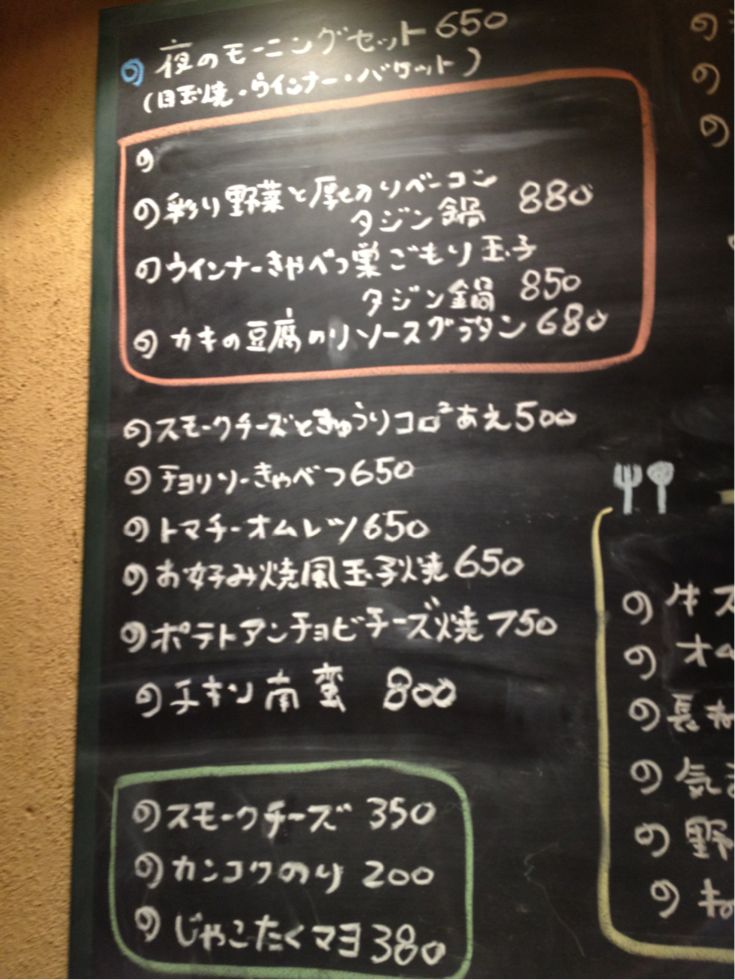 夜のモーニングセット 650
(目玉焼・ウインナー・バケット)
彩り野菜と厚切りベーコン
タジン鍋 880
ウインナーきゃべつ巣ごもり玉子
タジン鍋 850
カキの豆腐のりソースグラタン 680
スモークチーズときゅうりコロ²あえ 500
チョリソーきゃべつ 650
トマチーオムレツ 650
お好み焼風玉子焼 650
ポテトアンチョビチーズ焼 750
チキン南蛮 800
スモークチーズ 350
カンコクのり 200
じゃこたくマヨ 380
牛ス
オム
長ね
気ま
野